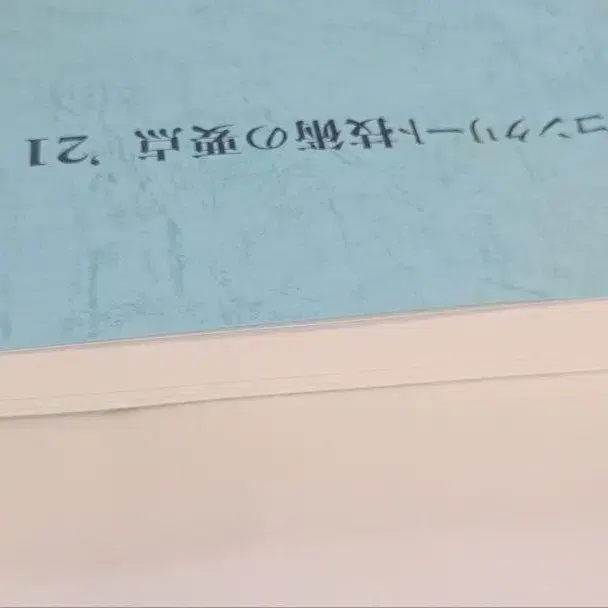 コンクリート技術の要点 ’21